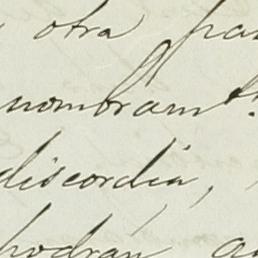 otra par
nombramt.
discordia,
podrán a